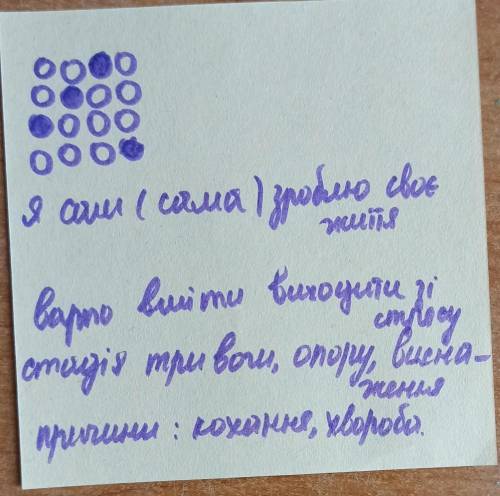 я сам (сама) зроблю своє
життя
варто вміти виходити зі
стресу
стадія тривоги, опору, висна-
ження
причини: кохання, хвороба.